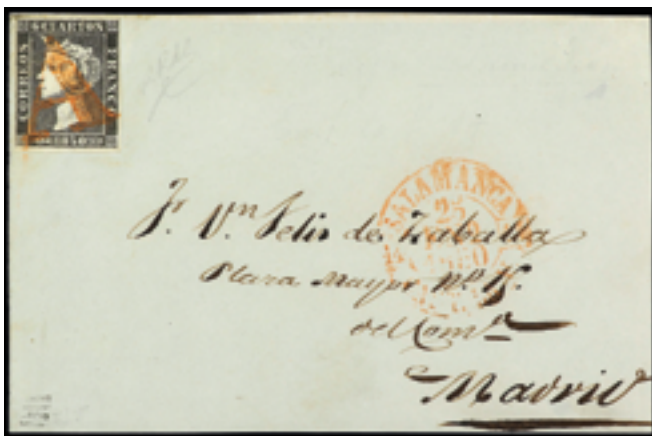 6 CUARTOS
CORREOS
FRANCO
1850
SALAMANCA
25
1850
Sr. Dn. Felix de Zaballa
Plaza Mayor Nº
del Comº
Madrid